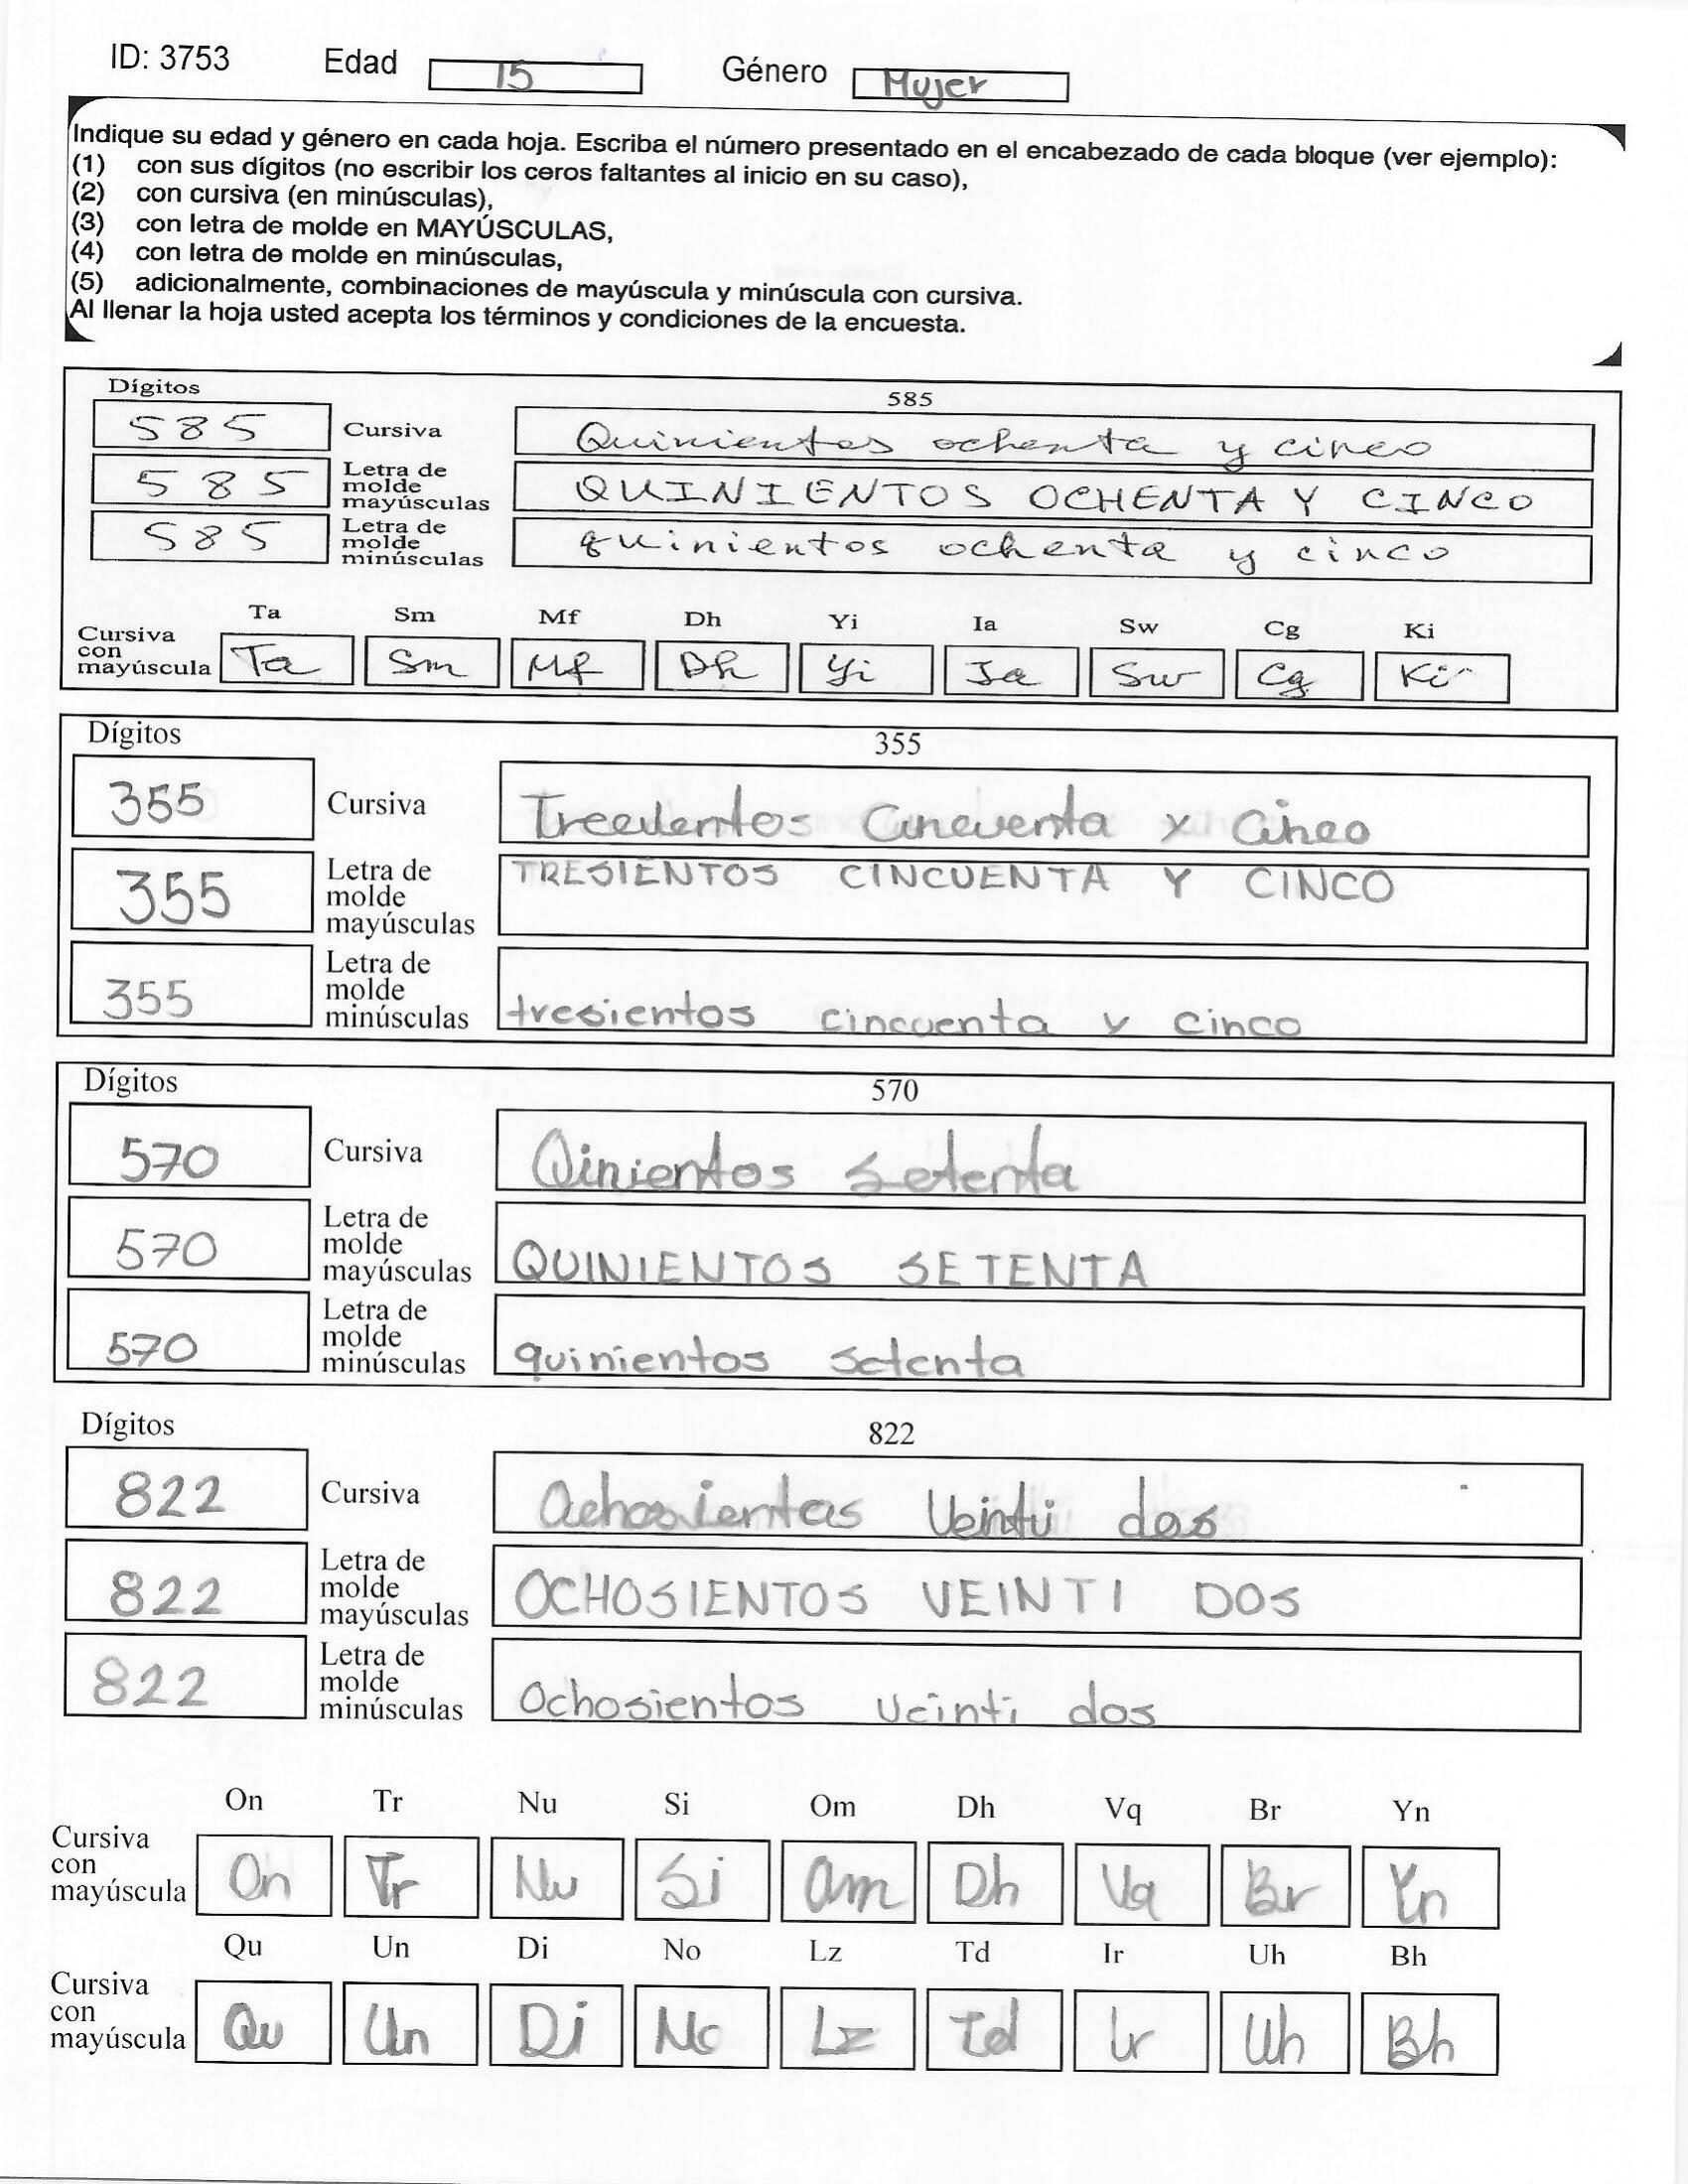 ID: 3753 Edad 15 Género Mujer
Indique su edad y género en cada hoja. Escriba el número presentado en el encabezado de cada bloque (ver ejemplo):
(1) con sus dígitos (no escribir los ceros faltantes al inicio en su caso),
(2) con cursiva (en minúsculas),
(3) con letra de molde en MAYÚSCULAS,
(4) con letra de molde en minúsculas,
(5) adicionalmente, combinaciones de mayúscula y minúscula con cursiva.
Al llenar la hoja usted acepta los términos y condiciones de la encuesta.
Dígitos 585
585 Cursiva Quinientos ochenta y cinco
585 Letra de molde mayúsculas QUINIENTOS OCHENTA Y CINCO
585 Letra de molde minúsculas quinientos ochenta y cinco
Ta Sm Mf Dh Yi Ia Sw Cg Ki
Cursiva con mayúscula Ta Sm Mf Dh Yi Ia Sw Cg Ki
Dígitos 355
355 Cursiva cincuenta y cinco
355 Letra de molde mayúsculas TRESIENTOS CINCUENTA Y CINCO
355 Letra de molde minúsculas tresientos cincuenta y cinco
Dígitos 570
570 Cursiva Qinientos setenta
570 Letra de molde mayúsculas QUINIENTOS SETENTA
570 Letra de molde minúsculas quinientos setenta
Dígitos 822
822 Cursiva Ochosientos Veinti dos
822 Letra de molde mayúsculas OCHOSIENTOS VEINTI DOS
822 Letra de molde minúsculas Ochosientos veinti dos
On Tr Nu Si Om Dh Vq Br Yn
Cursiva con mayúscula On Tr Nu Si Om Dh Vq Br Yn
Qu Un Di No Lz Td Ir Uh Bh
Cursiva con mayúscula Qu Un Di No Lz Td Ir Uh Bh